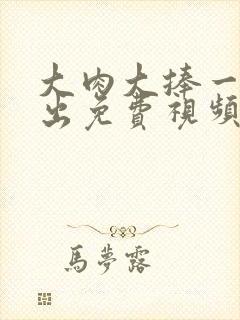 大肉大捧一
出免费視頻
馬夢露